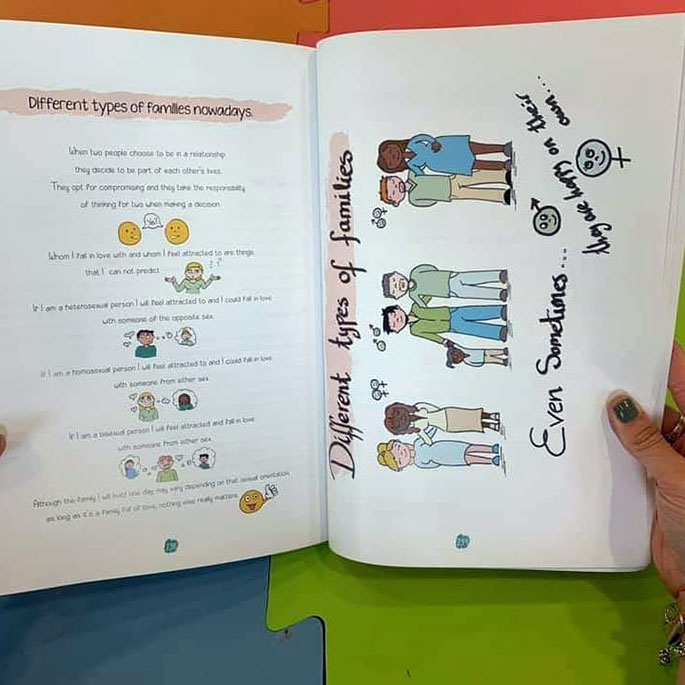 Different types of families nowadays.
When two people choose to be in a relationship
they decide to be part of each other's lives.
They opt for compromising and they take the responsibility
of thinking for two when making a decision.
Whom I fall in love with and whom I feel attracted to are things
that I can not predict
If I am a heterosexual person I will feel attracted to and I could fall in love
with someone of the opposite sex.
If I am a homosexual person I will feel attracted to and I could fall in love
with someone from either sex
If I am a bisexual person I will feel attracted and fall in love
with someone from either sex.
Although the family I will build one day may vary depending on that sexual orientation,
as long as it's a family full of love, nothing else really matters.
Different types of families
Even Sometimes...
they are happy on their
own...